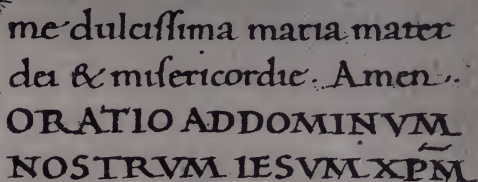 me dulciſſima maria mater
dei & miſericordie. Amen.
ORATIO AD DOMINVM
NOSTRVM IESVM XP̃M